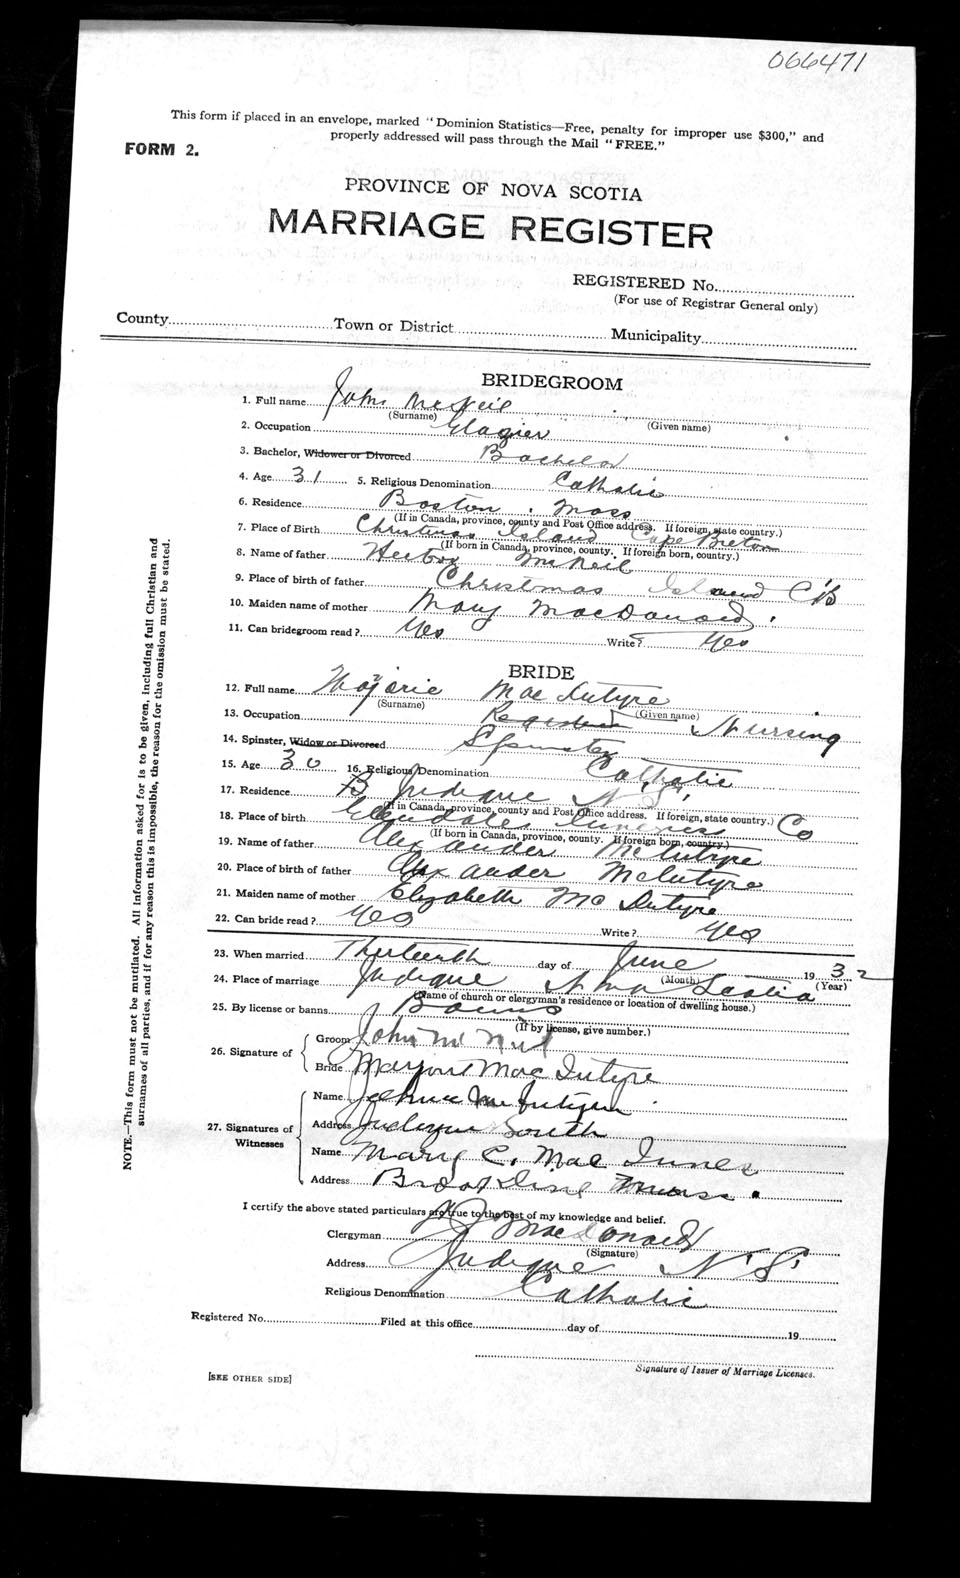 066471
This form if placed in an envelope, marked "Dominion Statistics—Free, penalty for improper use $300," and
properly addressed will pass through the Mail "FREE."
FORM 2.
PROVINCE OF NOVA SCOTIA
MARRIAGE REGISTER
REGISTERED No.
(For use of Registrar General only)
County Town or District Municipality
BRIDEGROOM
1. Full name John McNeil
(Surname) (Given name)
2. Occupation Glazier
3. Bachelor, Widower or Divorced Bachelor
4. Age 31 5. Religious Denomination Catholic
6. Residence Boston. Mass
(If in Canada, province, county and Post Office address. If foreign, state country.)
7. Place of Birth Christmas Island Cape Breton
(If born in Canada, province, county. If foreign born, country.)
8. Name of father McNeil
9. Place of birth of father Christmas Island C'B
10. Maiden name of mother Mary MacDonald
11. Can bridegroom read? Yes Write? Yes
BRIDE
12. Full name Marjorie MacIntyre
(Surname) (Given name)
13. Occupation Nursing
14. Spinster, Widow or Divorced Spinster
15. Age 30 16. Religious Denomination Catholic
17. Residence Judique N'S'
(If in Canada, province, county and Post Office address. If foreign, state country.)
18. Place of birth Glendale Inverness Co
(If born in Canada, province, county. If foreign born, country.)
19. Name of father Alexander McIntyre
20. Place of birth of father Alexander McIntyre
21. Maiden name of mother Elizabeth McIntyre
22. Can bride read? Yes Write? Yes
23. When married Thirteenth day of June 1932
(Month) (Year)
24. Place of marriage Judique Nova Scotia
(Name of church or clergyman's residence or location of dwelling house.)
25. By license or banns Banns
(If by license, give number.)
26. Signature of
Groom John McNeil
Bride Marjorie MacIntyre
27. Signatures of Witnesses
Name
Address Judique South
Name Mary C. MacInnes
Address Brookline Mass.
I certify the above stated particulars are true to the best of my knowledge and belief.
Clergyman MacDonald
(Signature)
Address Judique N'S'
Religious Denomination Catholic
Registered No. Filed at this office day of 19
Signature of Issuer of Marriage Licenses.
[SEE OTHER SIDE]
NOTE.—This form must not be mutilated. All information asked for is to be given, including full Christian and
surnames of all parties, and if for any reason this is impossible, the reason for the omission must be stated.